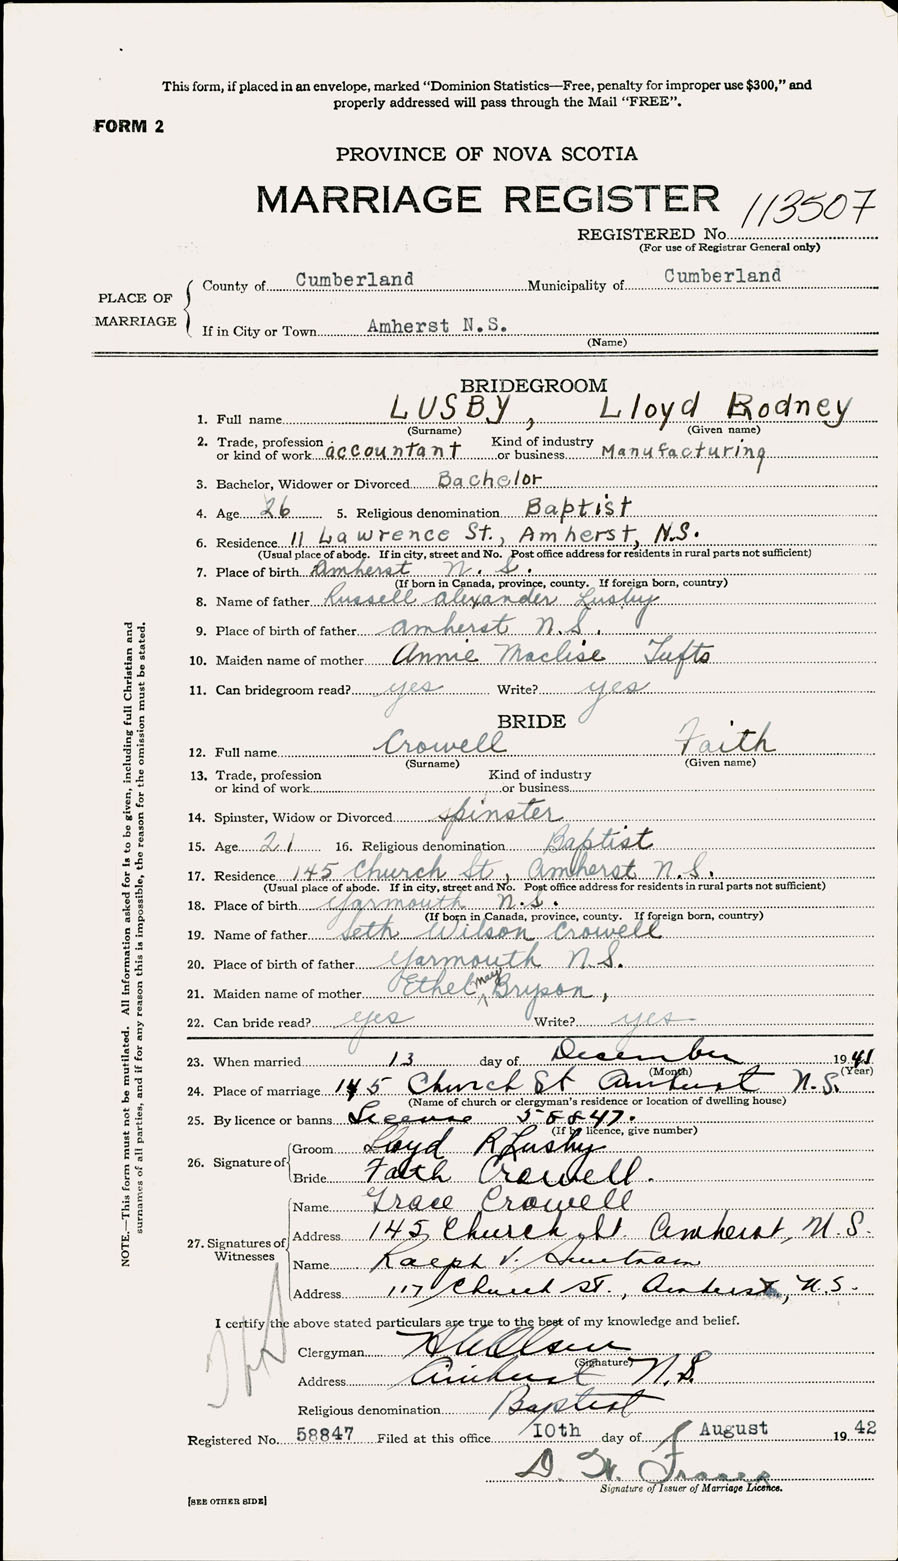 This form, if placed in an envelope, marked “Dominion Statistics—Free, penalty for improper use $300,” and
properly addressed will pass through the Mail “FREE”.
FORM 2
PROVINCE OF NOVA SCOTIA
MARRIAGE REGISTER
113507
REGISTERED No.
(For use of Registrar General only)
PLACE OF MARRIAGE
County of Cumberland Municipality of Cumberland
If in City or Town Amherst N.S.
(Name)
BRIDEGROOM
1. Full name LUSBY, Lloyd Rodney
(Surname) (Given name)
2. Trade, profession or kind of work accountant Kind of industry or business Manufacturing
3. Bachelor, Widower or Divorced Bachelor
4. Age 26 5. Religious denomination Baptist
6. Residence 11 Lawrence St., Amherst, N.S.
(Usual place of abode. If in city, street and No. Post office address for residents in rural parts not sufficient)
7. Place of birth Amherst N.S.
(If born in Canada, province, county. If foreign born, country)
8. Name of father Russell Alexander Lusby
9. Place of birth of father Amherst N.S.
10. Maiden name of mother Annie Maclise Tufts
11. Can bridegroom read? yes Write? yes
BRIDE
12. Full name Crowell Faith
(Surname) (Given name)
13. Trade, profession or kind of work Kind of industry or business
14. Spinster, Widow or Divorced Spinster
15. Age 21 16. Religious denomination Baptist
17. Residence 145 Church St, Amherst N.S.
(Usual place of abode. If in city, street and No. Post office address for residents in rural parts not sufficient)
18. Place of birth Yarmouth N.S.
(If born in Canada, province, county. If foreign born, country)
19. Name of father Seth Wilson Crowell
20. Place of birth of father Yarmouth N.S.
21. Maiden name of mother Ethel May Bryson,
22. Can bride read? yes Write? yes
23. When married 13 day of December 1941
(Month) (Year)
24. Place of marriage 145 Church St Amherst N.S.
(Name of church or clergyman's residence or location of dwelling house)
25. By licence or banns License 58847.
(If by licence, give number)
26. Signature of
Groom Lloyd R Lusby
Bride Faith Crowell.
27. Signatures of Witnesses
Name Grace Crowell
Address 145 Church St. Amherst, N.S.
Name Ralph V.
Address 117 Church St., Amherst, N.S.
I certify the above stated particulars are true to the best of my knowledge and belief.
Clergyman
(Signature)
Address Amherst N.S.
Religious denomination Baptist
Registered No. 58847 Filed at this office 10th day of August 1942
D. W. Fraser
Signature of Issuer of Marriage Licence.
[SEE OTHER SIDE]
NOTE.—This form must not be mutilated. All information asked for is to be given, including full Christian and
surnames of all parties, and if for any reason this is impossible, the reason for the omission must be stated.